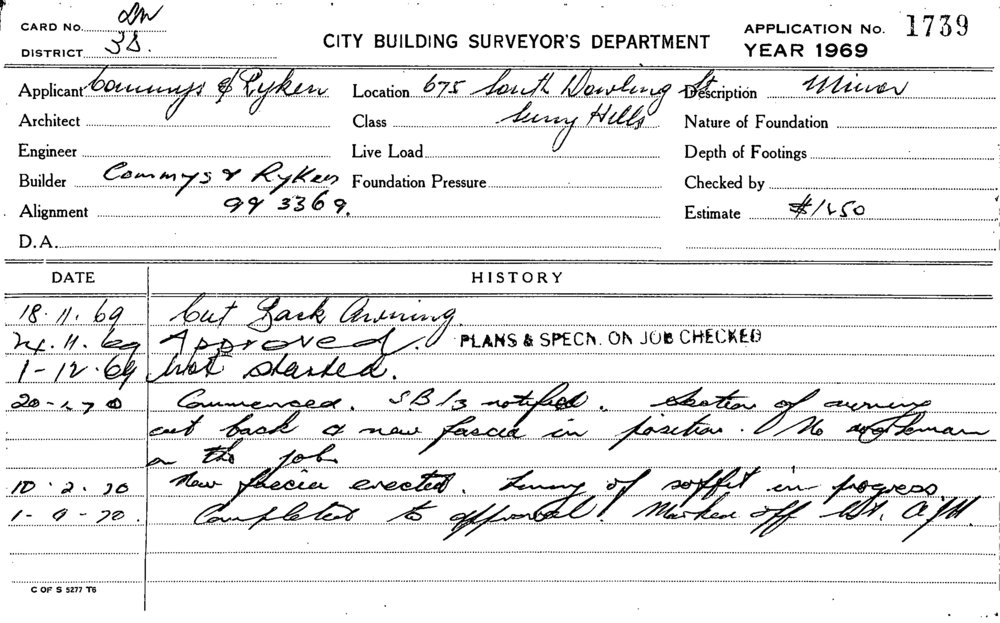 CARD No. DW
DISTRICT 3D.
CITY BUILDING SURVEYOR'S DEPARTMENT
APPLICATION No. 1739
YEAR 1969
Applicant Commys & Ryken Location 675 South Dowling St Description Minor
Architect Class Surry Hills Nature of Foundation
Engineer Live Load Depth of Footings
Builder Commys & Rykers Foundation Pressure Checked by
Alignment 99 3369. Estimate $1250
D.A.
DATE HISTORY
18.11.69 Cut Back Awning
24.11.69 Approved. PLANS & SPECN. ON JOB CHECKED
1-12.69 Not started.
20-1-70 Commenced. SB13 notified. Section of awning
cut back & new fascia in position. No workman
on the job.
10.2.70 New fascia erected. Lining of soffit in progress.
1-9-70. Completed to approval. Marked off
C OF S 5277 T6